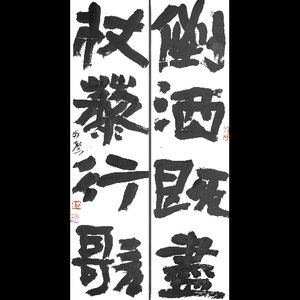 倒酒既盡
杖藜行歌